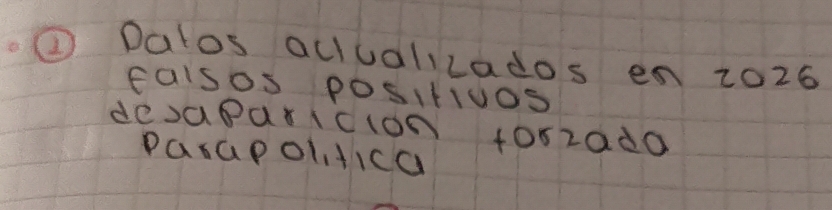 ① Datos actualizados en 2026
falsos positivos
desaparicion forzada
parapolitica